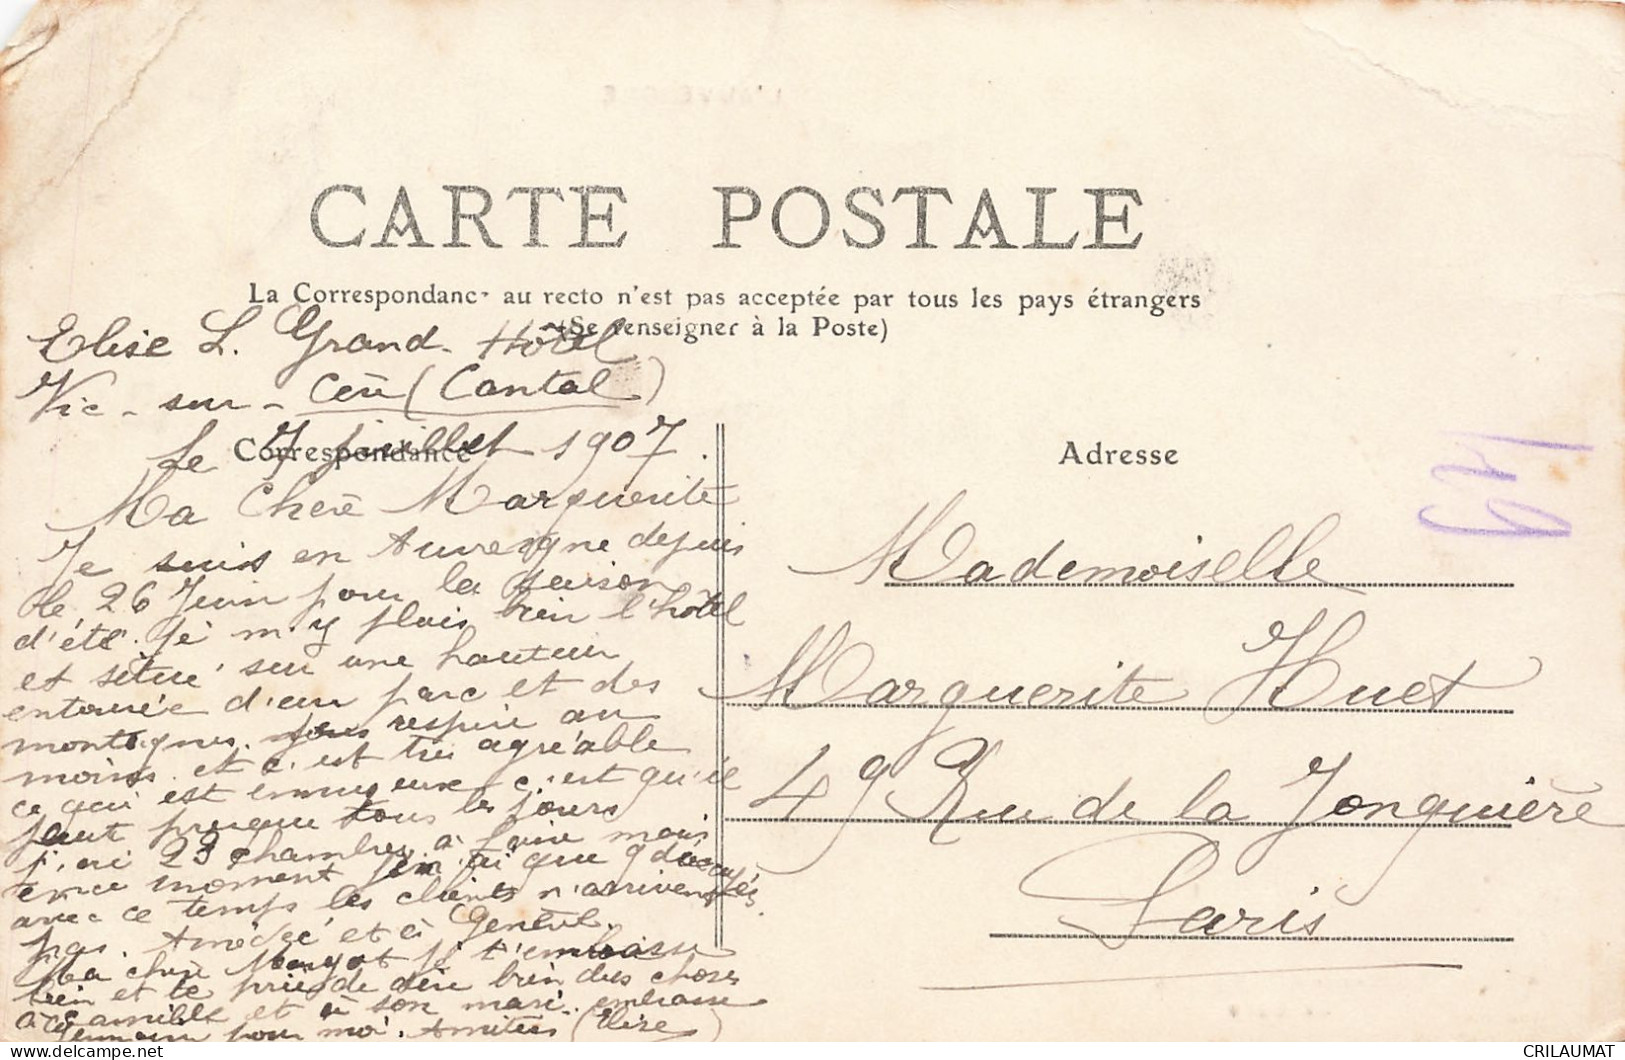 CARTE POSTALE
La Correspondance au recto n'est pas acceptée par tous les pays étrangers
(Se renseigner à la Poste)
Elise L. Grand-Hôtel
Vic-sur-Cère (Cantal)
Le 7 juillet 1907.
Correspondance
Ma Chère Marguerite
Je suis en Auvergne depuis
le 26 Juin pour la saison
d'été. Je m'y plais bien l'hôtel
et situé sur une hauteur
entourée d'un parc et des
montagnes. respire au
moins. et c'est très agréable
ce qui est ennuyeux c'est qu'il
faut presque tous les jours
j'ai 23 chambres à faire mais
en ce moment j'en ai que 9 d'occupés
avec ce temps les clients n'arrivent
pas. Amédée et à
Ma chère Margot je t'embrasse
bien et te prie de dire bien des choses
à Camille et à son mari. embrasse
Germain pour moi. Amitiés (Elise)
Adresse
Mademoiselle
Marguerite Huet
49 Rue de la Jonquière
Paris
CRILAUMAT